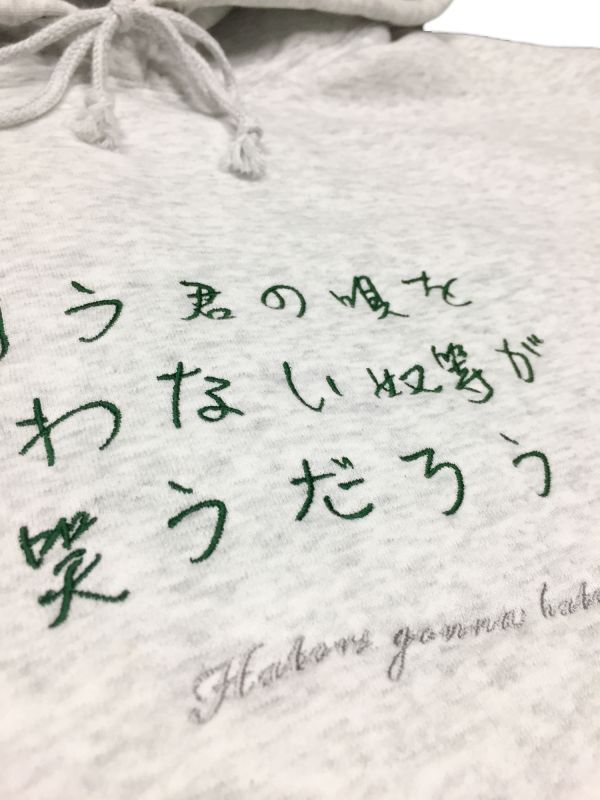 う君の唄を
わない奴等が
笑うだろう
Haters gonna hate